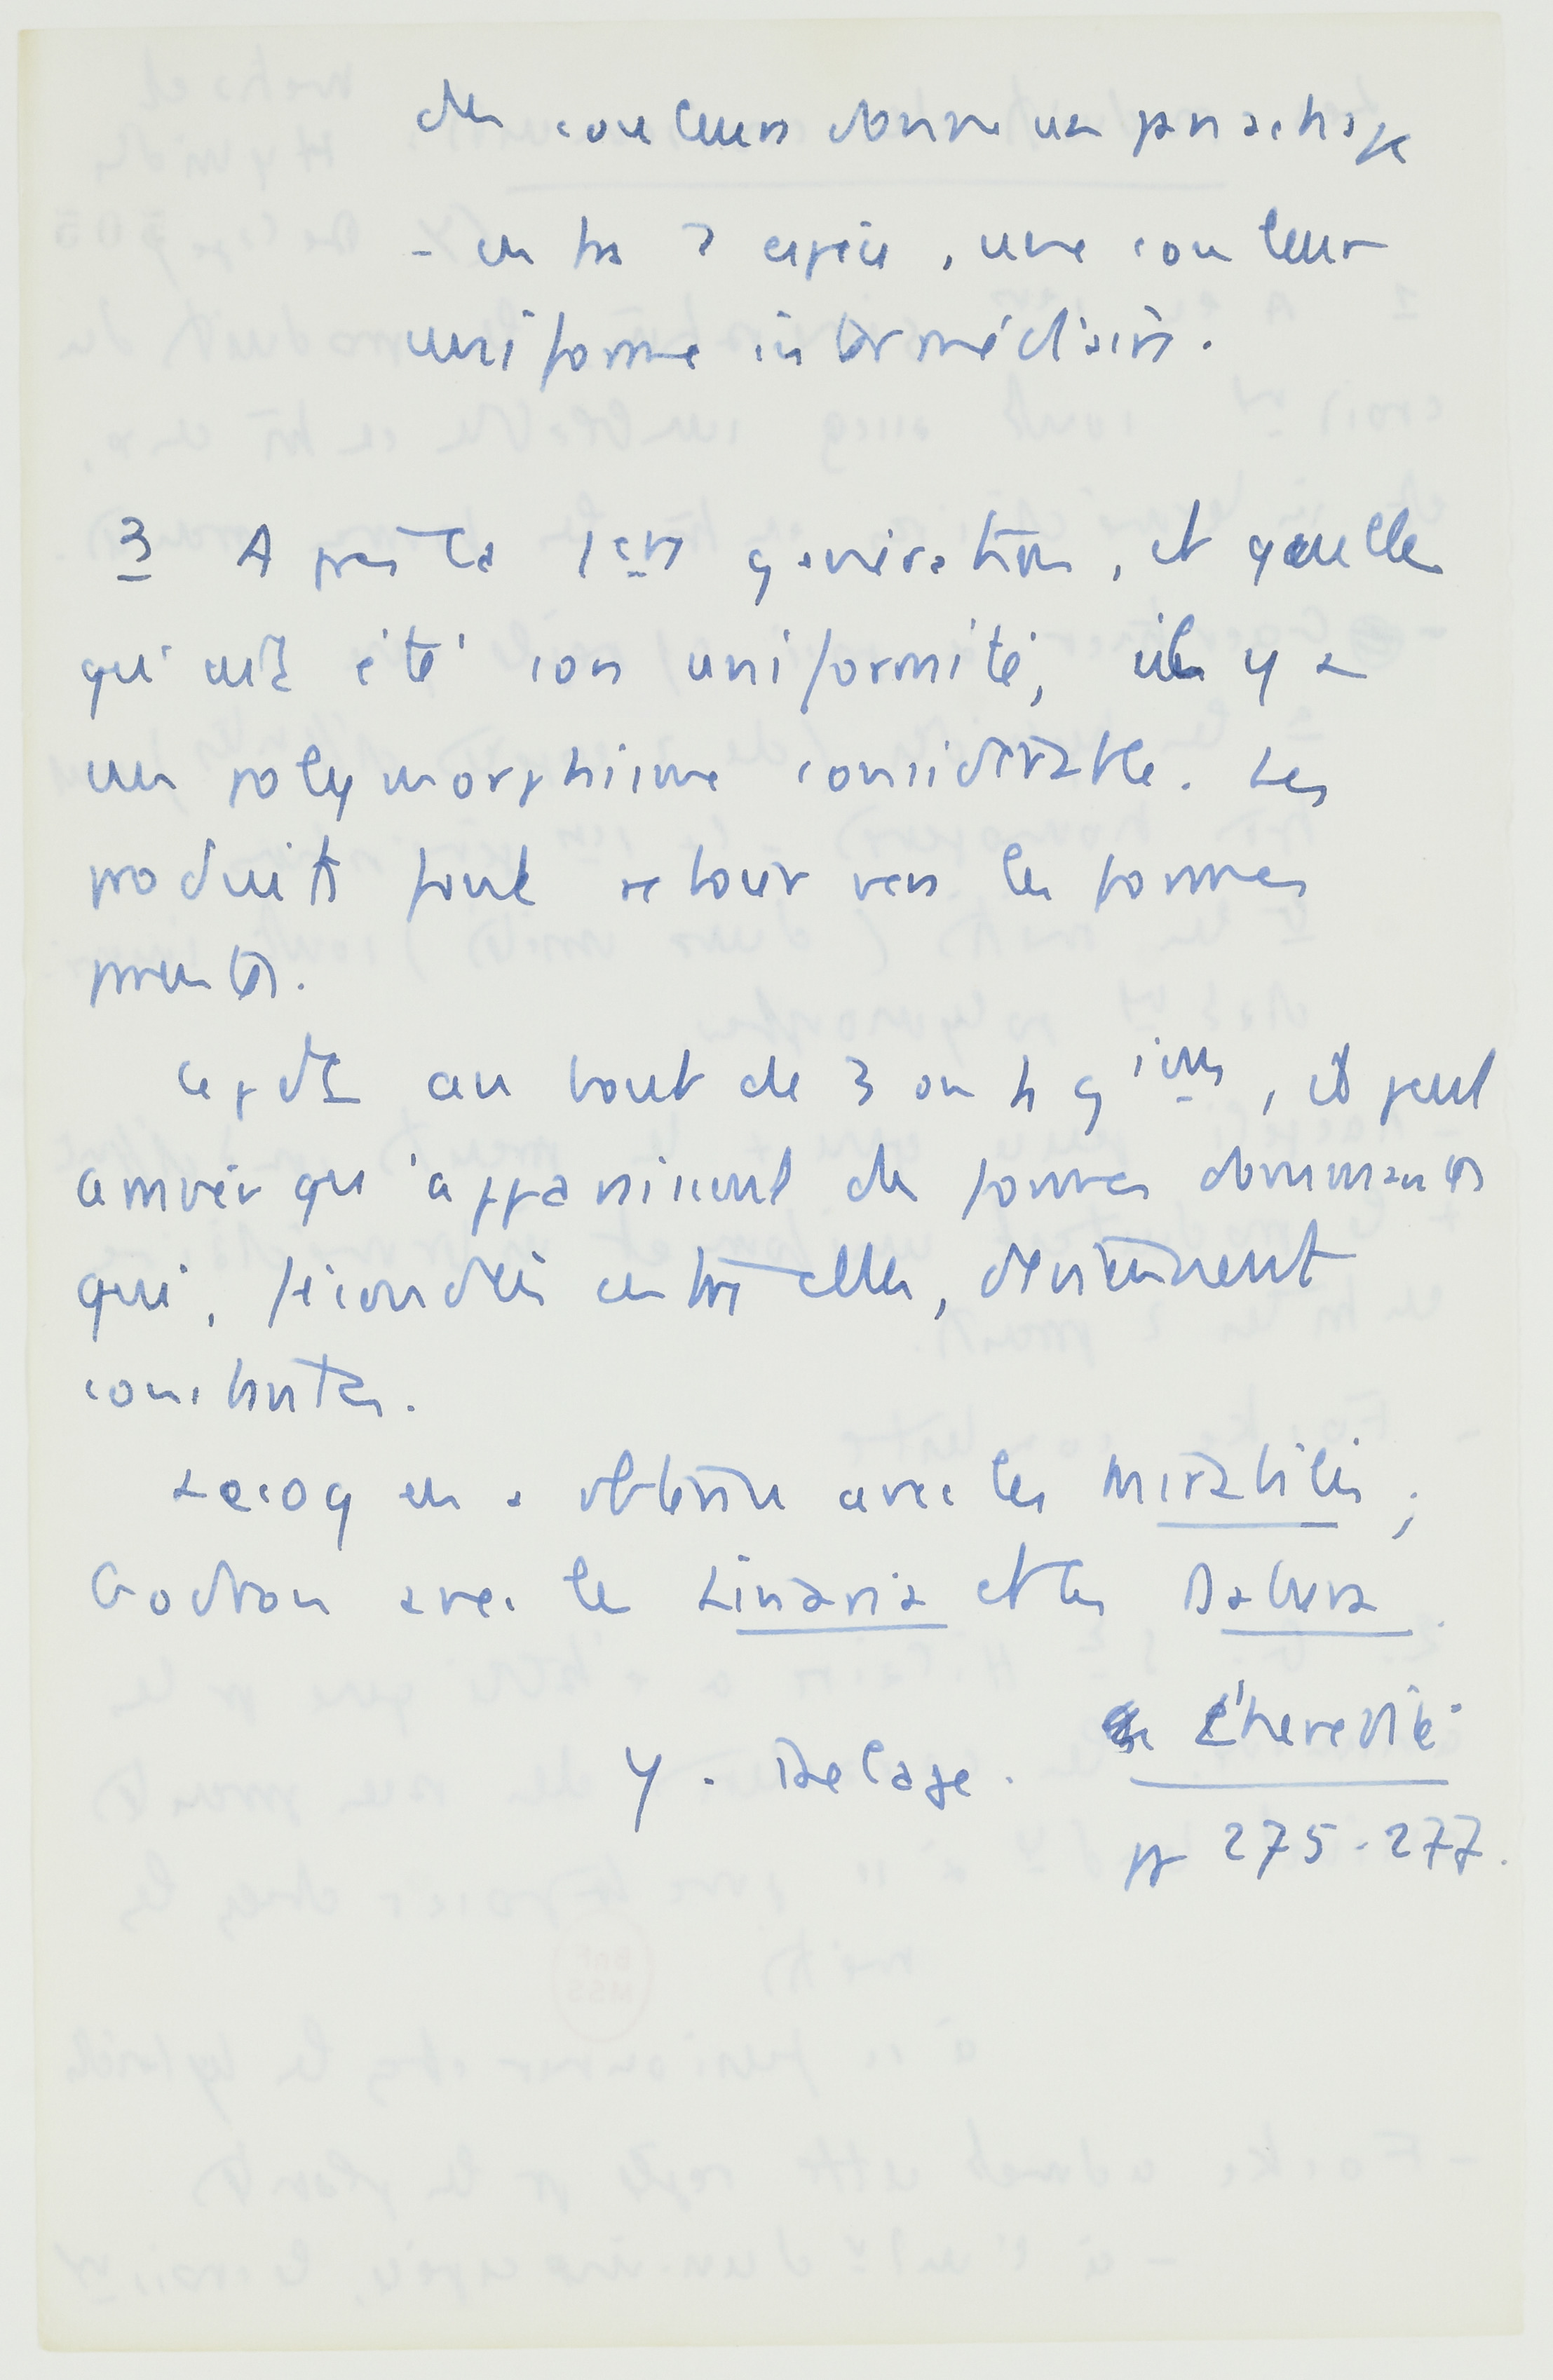 des couleurs donne un panachage
- entre 2 espèces, une couleur
uniforme intermédiaire.
3 Après la 1ere génération, et quelle
qu'ait été son uniformité, il y a
un polymorphisme considérable. Les
produits font retour vers les formes
parentes.
Cepdt au bout de 3 ou 4 gions, il peut
arriver qu'apparaissent des formes dominantes
qui, fécondées entre elles, deviennent
constantes.
Lecoq en a obtenu avec les Mirabilis ;
Godron avec les Linaria et les Datura.
Y. Delage. L'hérédité.
pp 275-277.